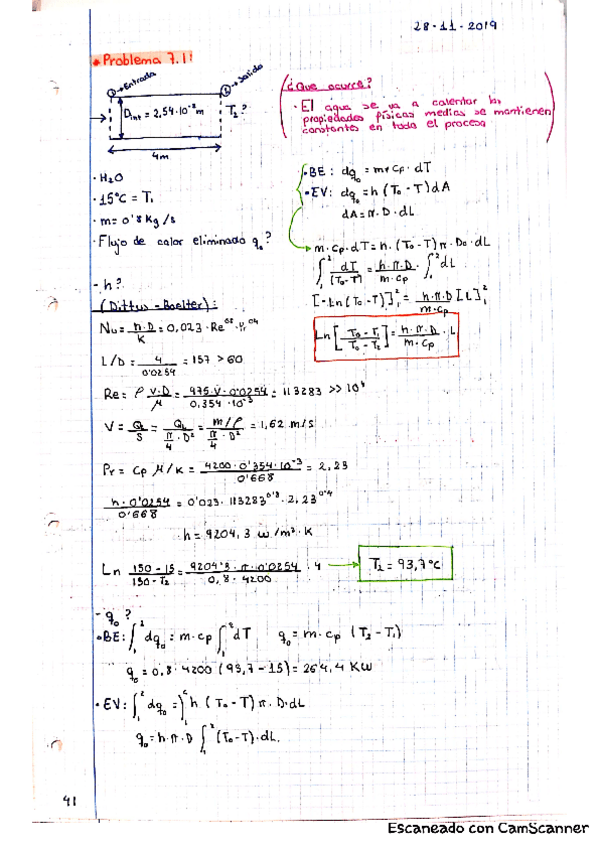 28-11-2019
• Problema 7.1:
① → Entrada
② → Salida
Dint = 2,54·10⁻² m
T₂?
4m
¿Que ocurre?
· El agua se va a calentar las
propiedades físicas medias se mantienen
constantes en todo el proceso
· H₂O
· 15°C = T₁
· m = 0'8 Kg/s
· Flujo de calor eliminado q₀?
· BE: dq₀ = m·Cp·dT
· EV: dq₀ = h(T₀-T)dA
dA = π·D·dL
m·Cp·dT = h·(T₀-T)π·D₀·dL
∫₁² dT/(T₀-T) = h·π·D/m·Cp · ∫₁² dL
[-Ln(T₀-T)]₁² = h·π·D/m·Cp [L]₁²
Ln[T₀-T₁/T₀-T₂] = h·π·D/m·Cp · L
- h?
(Dittus-Boelter):
Nu = h·D/K = 0,023·Re⁰'⁸·Pr⁰'⁴
L/D = 4/0'0254 = 157 > 60
Re = ρ V·D/μ = 975·V·0'0254/0,354·10⁻³ = 113283 >> 10⁴
V = QL/S = QL/(π/4·D²) = (m/ρ)/(π/4·D²) = 1,62 m/s
Pr = Cp μ/K = 4200·0'354·10⁻³/0'668 = 2,23
h·0'0254/0'668 = 0'023·113283⁰'⁸·2,23⁰'⁴
h = 9204,3 w/m²·K
Ln 150-15/150-T₂ = 9204'3·π·0'0254/0,8·4200 · 4 → T₂ = 93,7°C
- q₀?
• BE: ∫₁² dq₀ = m·cp ∫₁² dT q₀ = m·cp (T₂-T₁)
q₀ = 0,8·4200 (93,7-15) = 264,4 KW
· EV: ∫₁² dq₀ = ∫₁² h (T₀-T) π·D·dL
q₀ = h·π·D ∫₁² (T₀-T)·dL
41
Escaneado con CamScanner